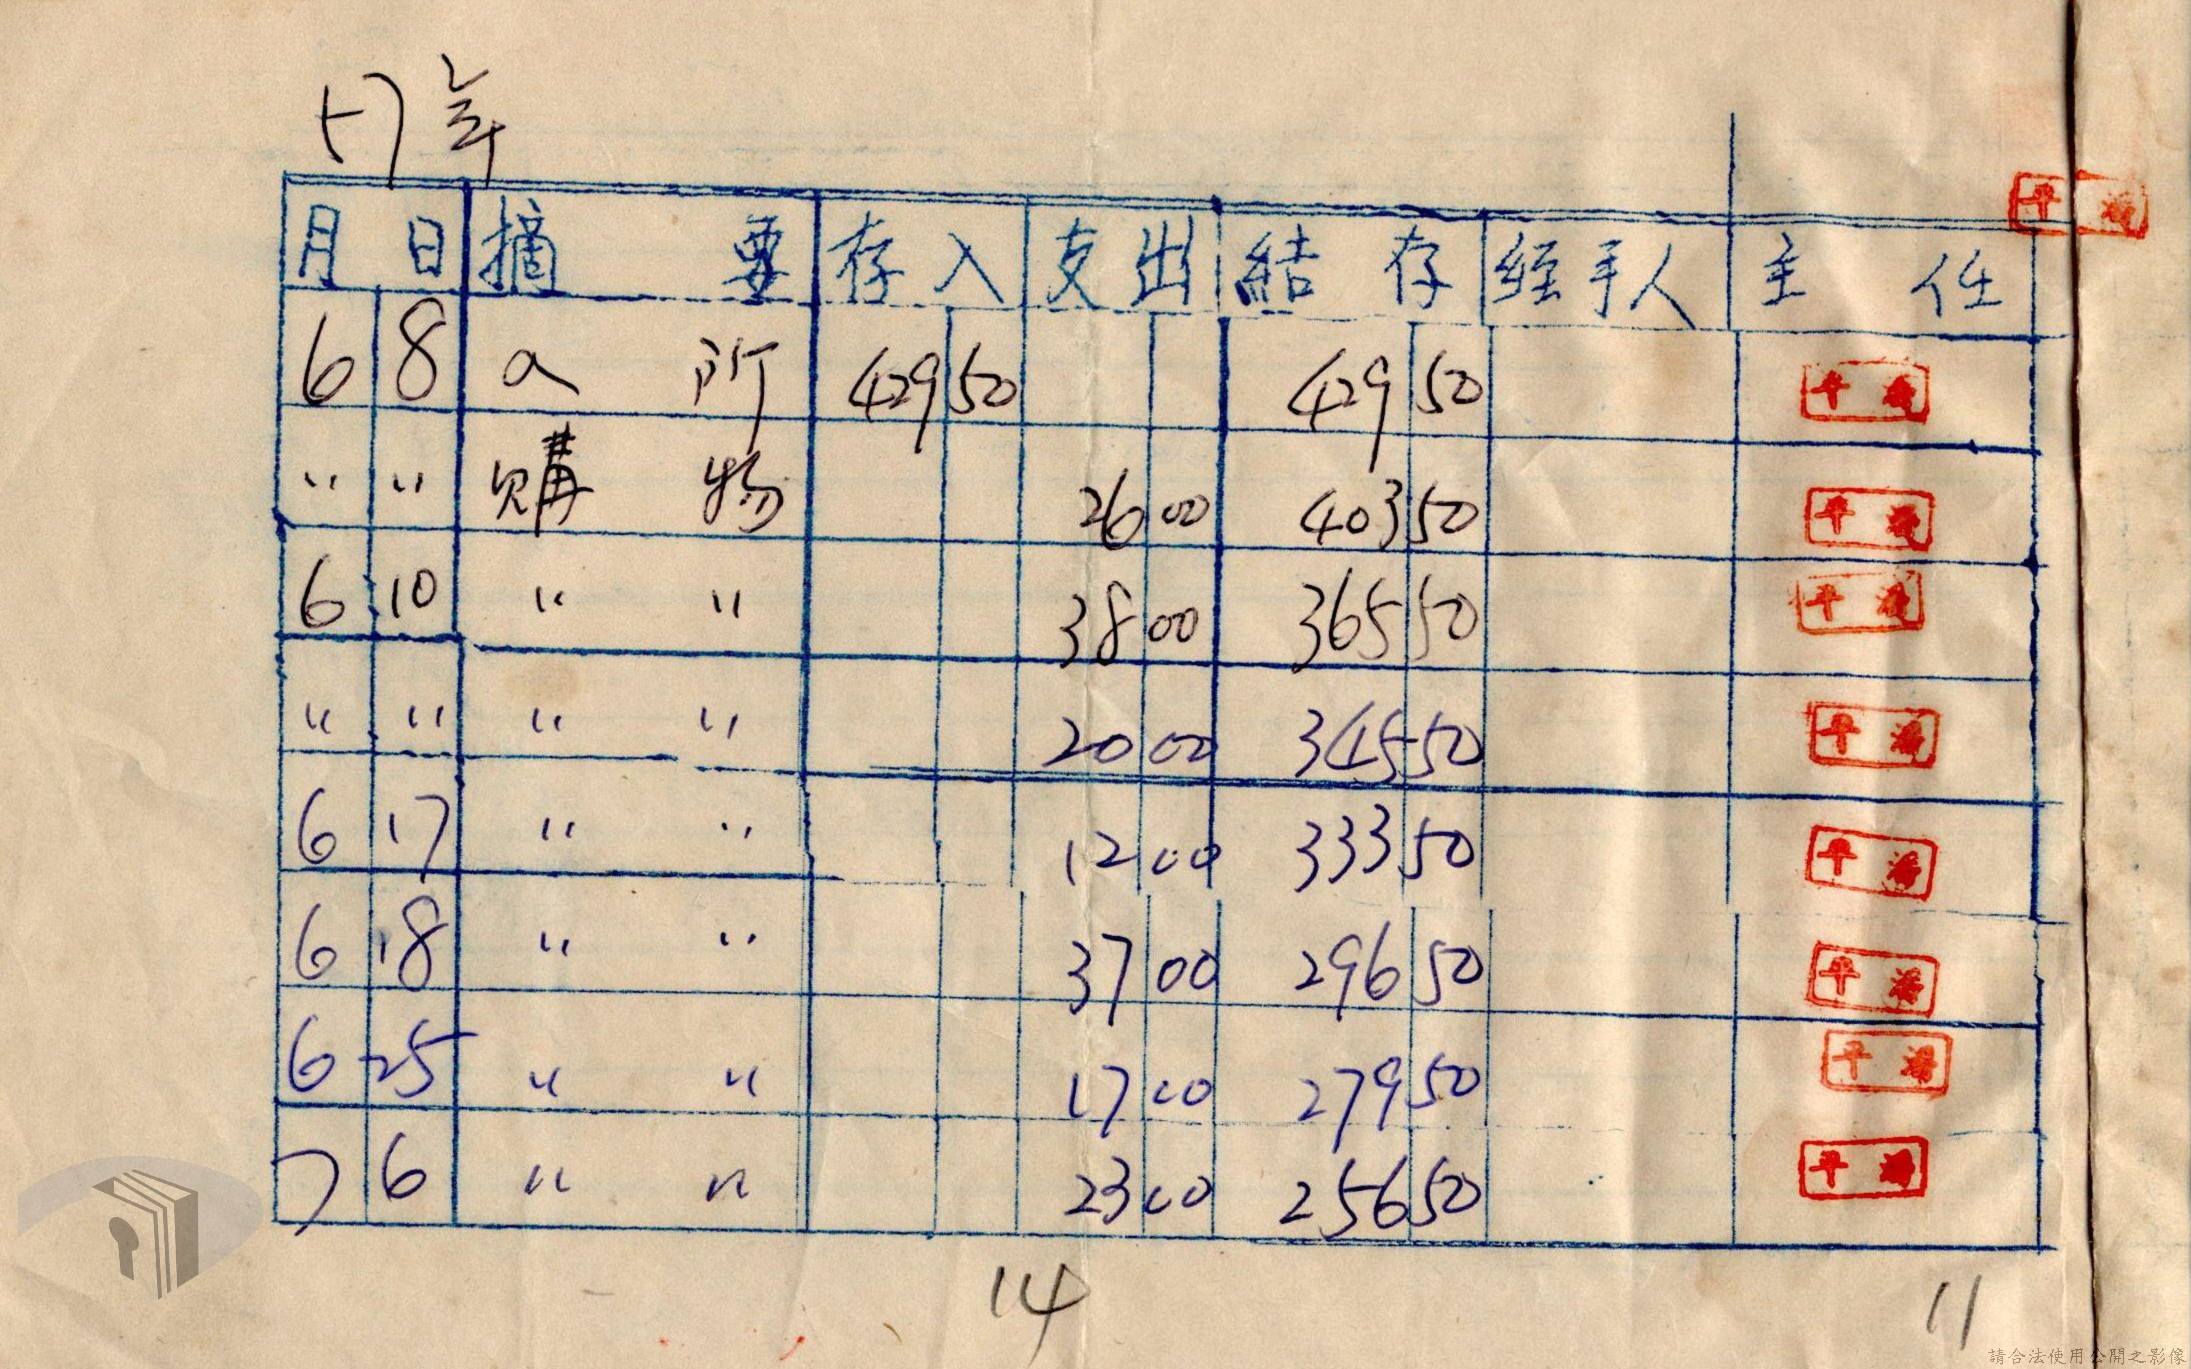 57年
月 日 摘 要 存入 支出 結 存 經手人 主 任
6 8 入 所 429 50 429 50
〃 〃 購 物 26 00 403 50
6 10 〃 〃 38 00 365 50
〃 〃 〃 〃 20 00 345 50
6 17 〃 〃 12 00 333 50
6 18 〃 〃 37 00 296 50
6 25 〃 〃 17 00 279 50
7 6 〃 〃 23 00 256 50
14
11
請合法使用公開之影像